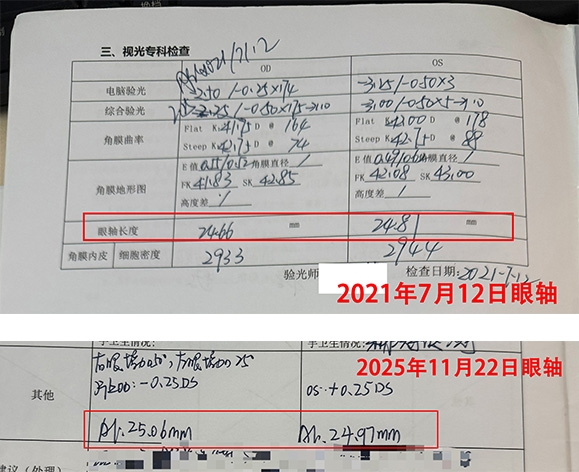 三、视光专科检查
2021/7/12
OD OS
电脑验光 -2.50/-0.25×174 -3.25/-0.50×3
综合验光 -2.25/-0.50×175→1.0 -3.00/-0.50×5→1.0
角膜曲率 Flat K 41.75 D @ 164 Flat K 42.00 D @ 178
Steep K 42.75 D @ 74 Steep K 42.75 D @ 88
角膜地形图 E 值 角膜直径 / E 值 角膜直径 /
FK 41.83 SK 42.85 FK 42.08 SK 43.00
高度差 / 高度差 /
眼轴长度 24.66 mm 24.81 mm
角膜内皮 细胞密度 2933 2944
验光师 检查日期: 2021-7-12
2021年7月12日眼轴
手卫生情况: 手卫生情况:
2025年11月22日眼轴
其他
-0.25DS OS: +0.25DS
AL: 25.06mm AL: 24.97mm
建议(处理)